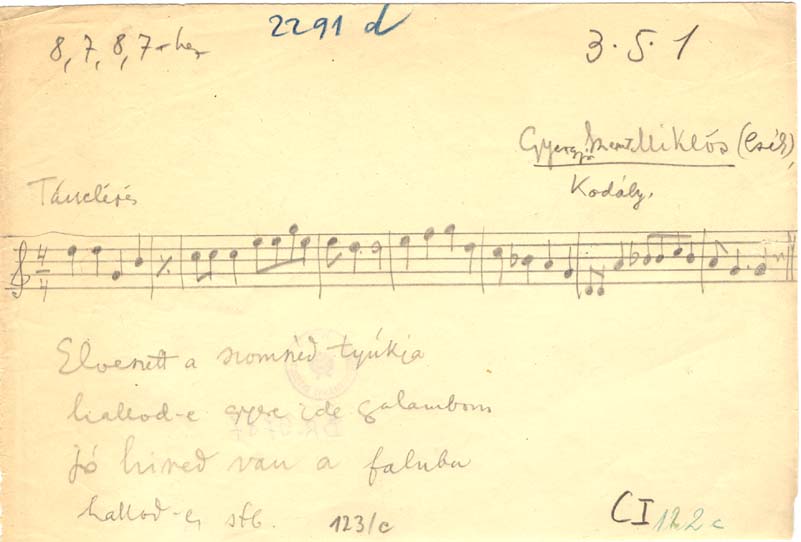 2291 d
8, 7, 8, 7-hez
3. 5. 1
Gyergyó Szent Miklós (Csík),
Kodály.
Tánclépés
4
4
Elveszett a szomszéd tyúkja
hallod-e gyere ide galambom
Jó hired van a faluba
hallod-e, stb.
123/c
CI 122c